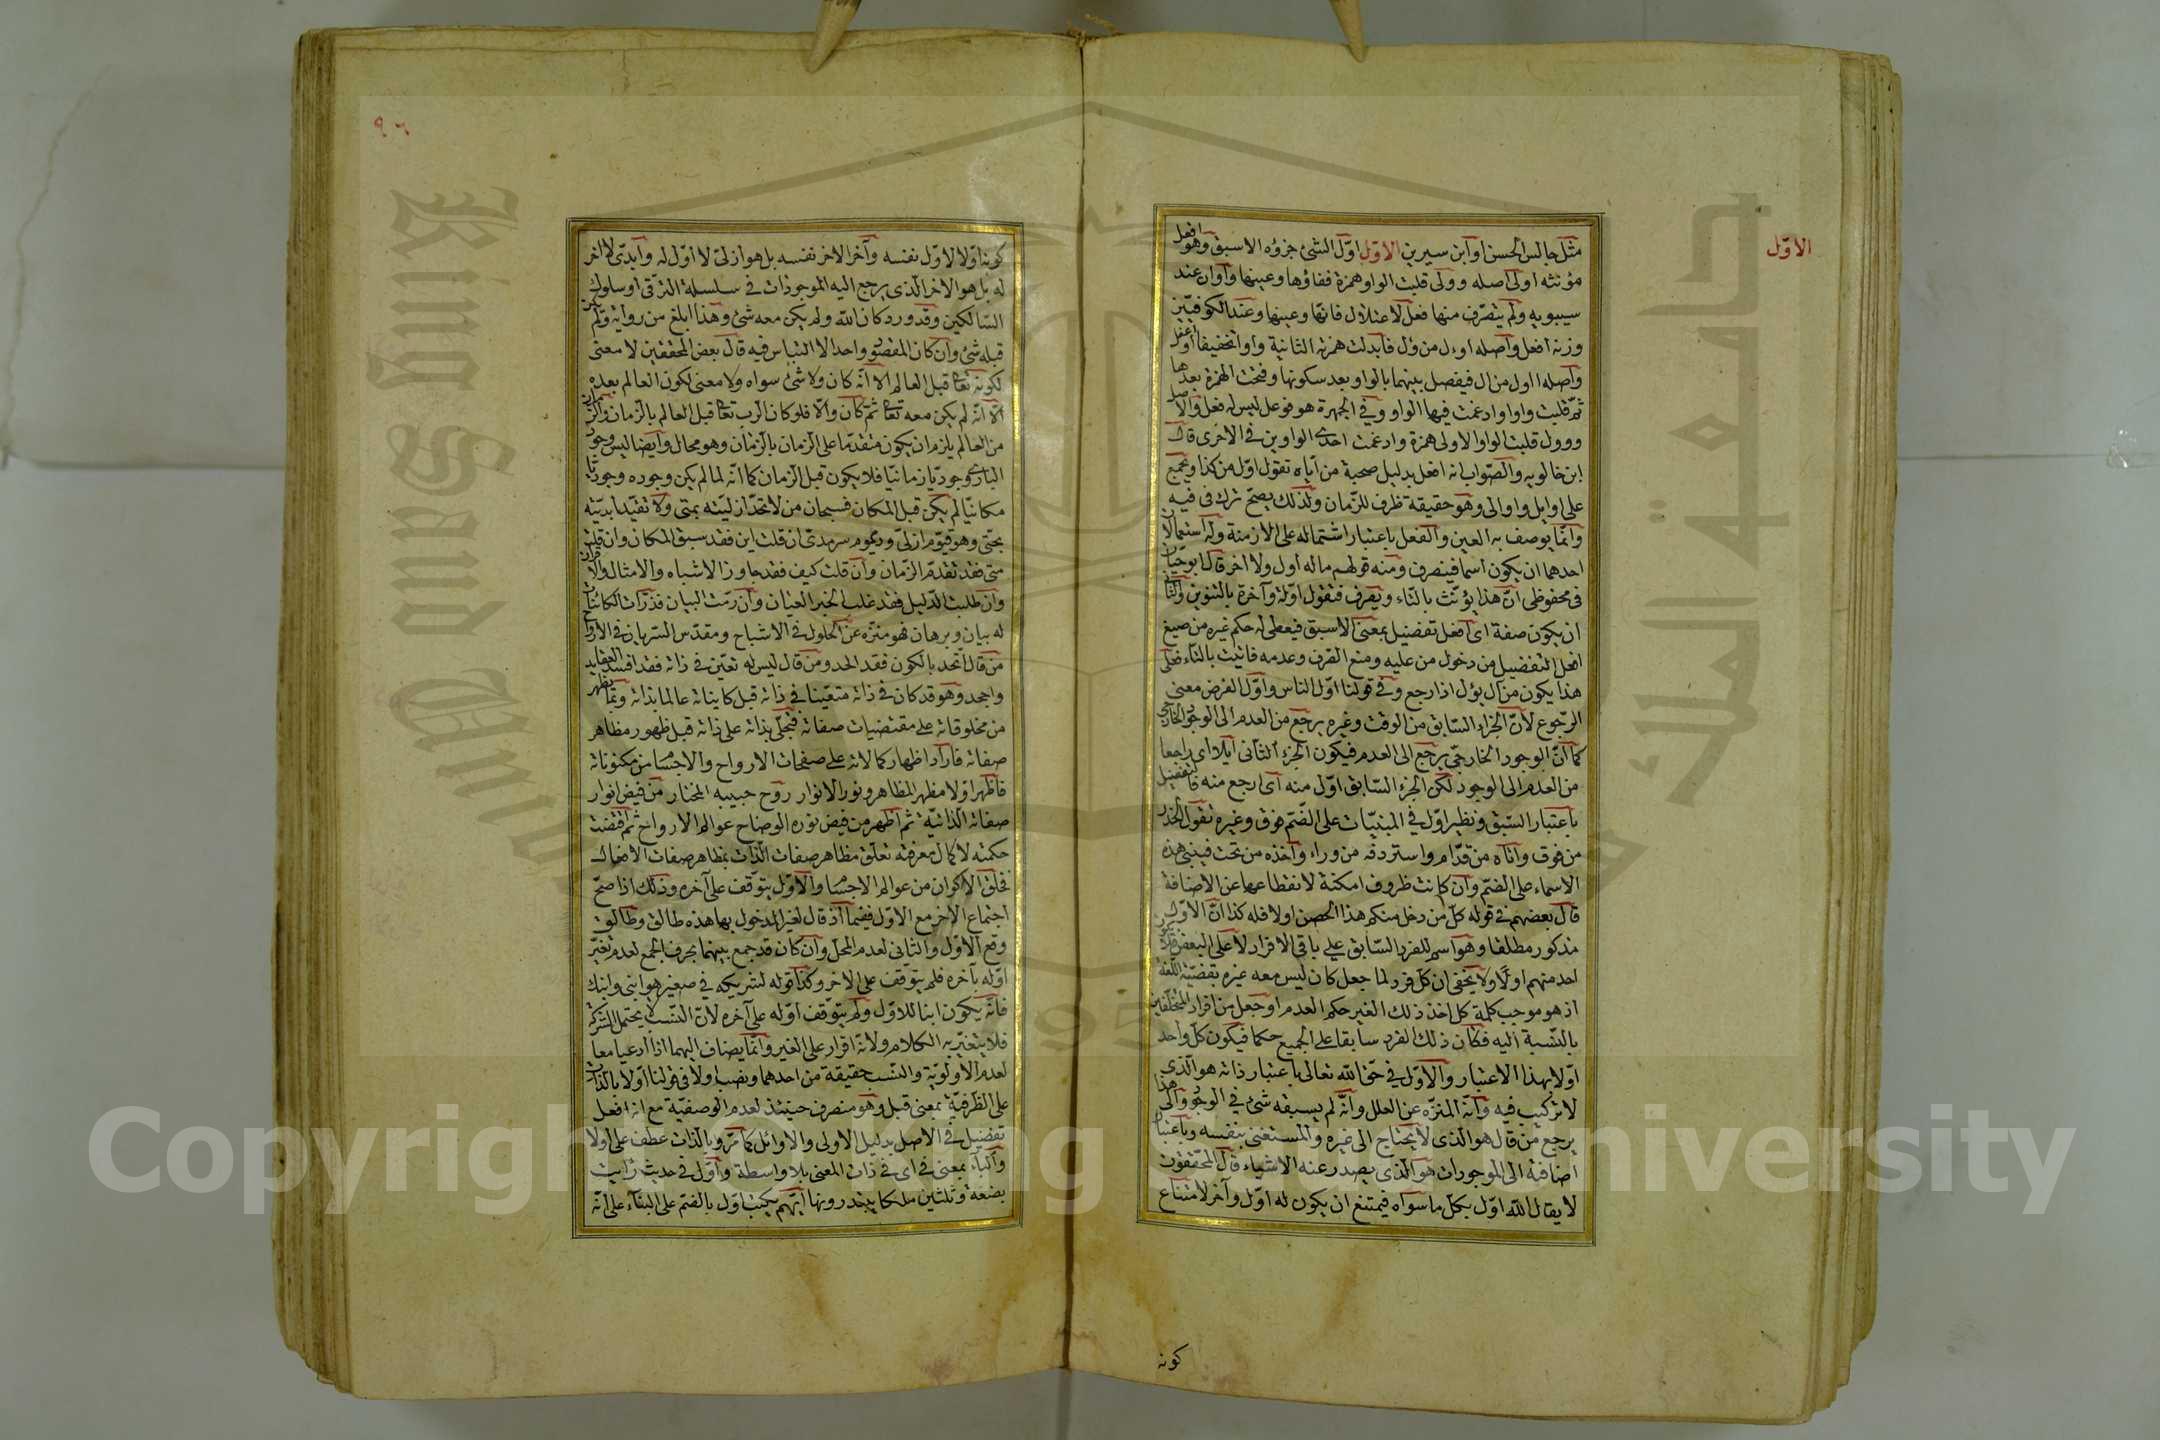 الاول
مثل جالس الحسن او ابن سيرين الاول اول الشئ جزؤه الاسبق وهو افعل
مؤنثه اولى اصله وولى قلبت الواو همزة ففاؤها وعينها واوان عند
سيبويه ولم يتصرف منها فعل لاعتلال فائها وعينها وعند الكوفيين
وزنه افعل واصله اوءل من وأل فابدلت همزته الثانية واوا تخفيفا او اعفل
واصله ااول من ال فيفصل بينهما بالواو بعد سكونها وفتحت الهمزة بعدها
ثم قلبت واوا وادغمت فيها الواو وفي الجمهرة هو فوعل ليس له فعل والاصل
ووول قلبت الواو الاولى همزة وادغمت احدى الواوين في الاخرى قال
ابن خالويه والصواب انه افعل بدليل صحبة من اياه تقول اول من كذا ويجمع
على اوايل واوالى وهو حقيقة ظرف للزمان ولذلك يصح ترك في فيه
وانما يوصف به العين والفعل باعتبار اشتماله على الازمنة وله استعمالان
احدهما ان يكون اسما فينصرف ومنه قولهم ماله اول ولا اخر قال ابو حيان
في محفوظى ان هذا يؤنث بالتاء ويصرف فتقول اولة وآخرة بالتنوين والثانى
ان يكون صفة اى افعل تفضيل بمعنى الاسبق فيعطى له حكم غيره من صيغ
افعل التفضيل من دخول من عليه ومنع الصرف وعدمه تانيث بالتاء فعلى
هذا يكون من ال يؤل اذا رجع وفي قولنا اول الناس واول الغرض معنى
الرجوع لان الجزء السابق من الوقت وغيره يرجع من العدم الى الوجود الخارجى
كما ان الوجود الخارجي يرجع الى العدم فيكون الجزء الثانى ايلا اى راجعا
من العدم الى الوجود لكن الجزء السابق اول منه اى ارجع منه فالتفضيل
باعتبار السبق ونظير اول في المبنيات على الضم فوق وغيره تقول انحدر
من فوق واتاه من قدام واستردفه من وراء واخذه من تحت فيبنى هذه
الاسماء على الضم وان كانت ظروف امكنة لانقطاعها عن الاضافة
قال بعضهم في قوله كل من دخل منكم هذا الحصن اولا فله كذا ان الاول
مذكور مطلقا وهو اسم للفرد السابق على باقى الافراد لا على البعض
احد منهم اولا ولا يخفى ان كل فرد لما جعل كان ليس معه غيره بقضية اللغة
اذ هو موجب كلمة كل اخذ ذلك الغير حكم العدم او جعل من افراد المتخلفين
بالنسبة اليه فكان ذلك الفرد سابقا على الجميع حكما فيكون كل واحد
اولا بهذا الاعتبار والاول في حق الله تعالى باعتبار ذاته هو الذى
لا تركيب فيه وانه المنزه عن العلل وانه لم يسبقه شئ في الوجود والى هذا
يرجع من قال هو الذى لا يحتاج الى غيره والمستغنى بنفسه وباعتبار
اضافته الى الموجودات هو الذى يصدر عنه الاشياء قال المحققون
لا يقال الله اول بكل ما سواه فيمتنع ان يكون له اول وآخر لامتناع
كونه
٩٦
كونه اولا لاول نفسه وآخر الاخر نفسه بل هو ازلى لا اول له وابدى لا اخر
له بل هو الاخر الذى يرجع اليه الموجودات في سلسلة الترقى او سلوك
السالكين وقد ورد كان الله ولم يكن معه شئ وهذا ابلغ من رواية ولم يكن
قبله شئ وان كان المقصود واحدا لا التباس فيه قال بعض المحققين لا معنى
لكونه تعالى قبل العالم الا انه كان ولا شئ سواه ولا معنى لكون العالم بعده
الا انه لم يكن معه تعالى ثم كان والا فلو كان الرب تعالى قبل العالم بالزمان والزمان
من العالم يلزم ان يكون متقدما على الزمان بالزمان وهو محال وايضا ليس وجود
البارى وجوديا زمانيا فلا يكون قبل الزمان كما انه لما لم يكن وجوده وجوديا
مكانيا لم يكن قبل المكان فسبحان من لا تحد ازليته بمتى ولا تقيد ابديته
بحتى وهو قيوم ازلى وديموم سرمدى ان قلت اين فقد سبق المكان وان قلت
متى فقد تقدم الزمان وان قلت كيف فقد جاوز الاشباه والامثال والاقران
وان طلبت الدليل فقد غلب الخبر العيان وان رمت البيان فذرات الكائنات
له بيان وبرهان فهو منزه عن الحلول في الاشباح ومقدس السريان في الارواح
من قال اتحد بالكون فقد الحد ومن قال ليس له تعين في ذاته فقد افسد العقايد
واجحد وهو قد كان في ذاته متعينا في ذاته قبل كايناته عالما بذاته وبما يظهر
من مخلوقاته على مقتضيات صفاته فتجلى بذاته على ذاته قبل ظهور مظاهر
صفاته فاراد اظهار كمالاته على صفحات الارواح والاجسام من مكنوناته
فاظهر اولا مظهر المظاهر ونور الانوار روح حبيبه المختار من فيض انوار
صفاته الذاتية ثم اظهر من فيض نوره الوضاح عوالم الارواح ثم اقتضت
حكمته لاكمال معرفته تعلق مظاهر صفات الذات بمظاهر صفات الافعال
فخلق الاكوان من عوالم الاجسام والاول يتوقف على آخره وذلك اذا صح
اجتماع الاخر مع الاول ففيما اذ قال لغير المدخول بها هذه طالق وطالق
وقع الاول والثانى لعدم المحل وان كان قد جمع بينهما بحرف الجمع لعدم تغير
اوله بآخره فلم يتوقف على الاخر وكذا قوله لشريكه في صغير هو ابنى وابنك
فانه يكون ابنا للاول ولم يتوقف اوله على آخره لان النسب لا يحتمل الشركة
فلا يتغير به الكلام ولانه اقرار على الغير وانما يضاف اليهما اذا ادعيا معا
لعدم الاولوية والنسب حقيقة من احدهما ونصب اولا في قولنا اولا بالذات
على الظرفية بمعنى قبل وهو منصرف حينئذ لعدم الوصفية مع انه افعل
تفضيل في الاصل بدليل الاولى والاوائل كما مر وبالذات عطف على اولا
والباء بمعنى في اى في ذات المعنى بلا واسطة واول في حديث رايت
بضعة وثلثين ملكا يبتدرونها ايهم يكتب اول بالضم على البناء على انه